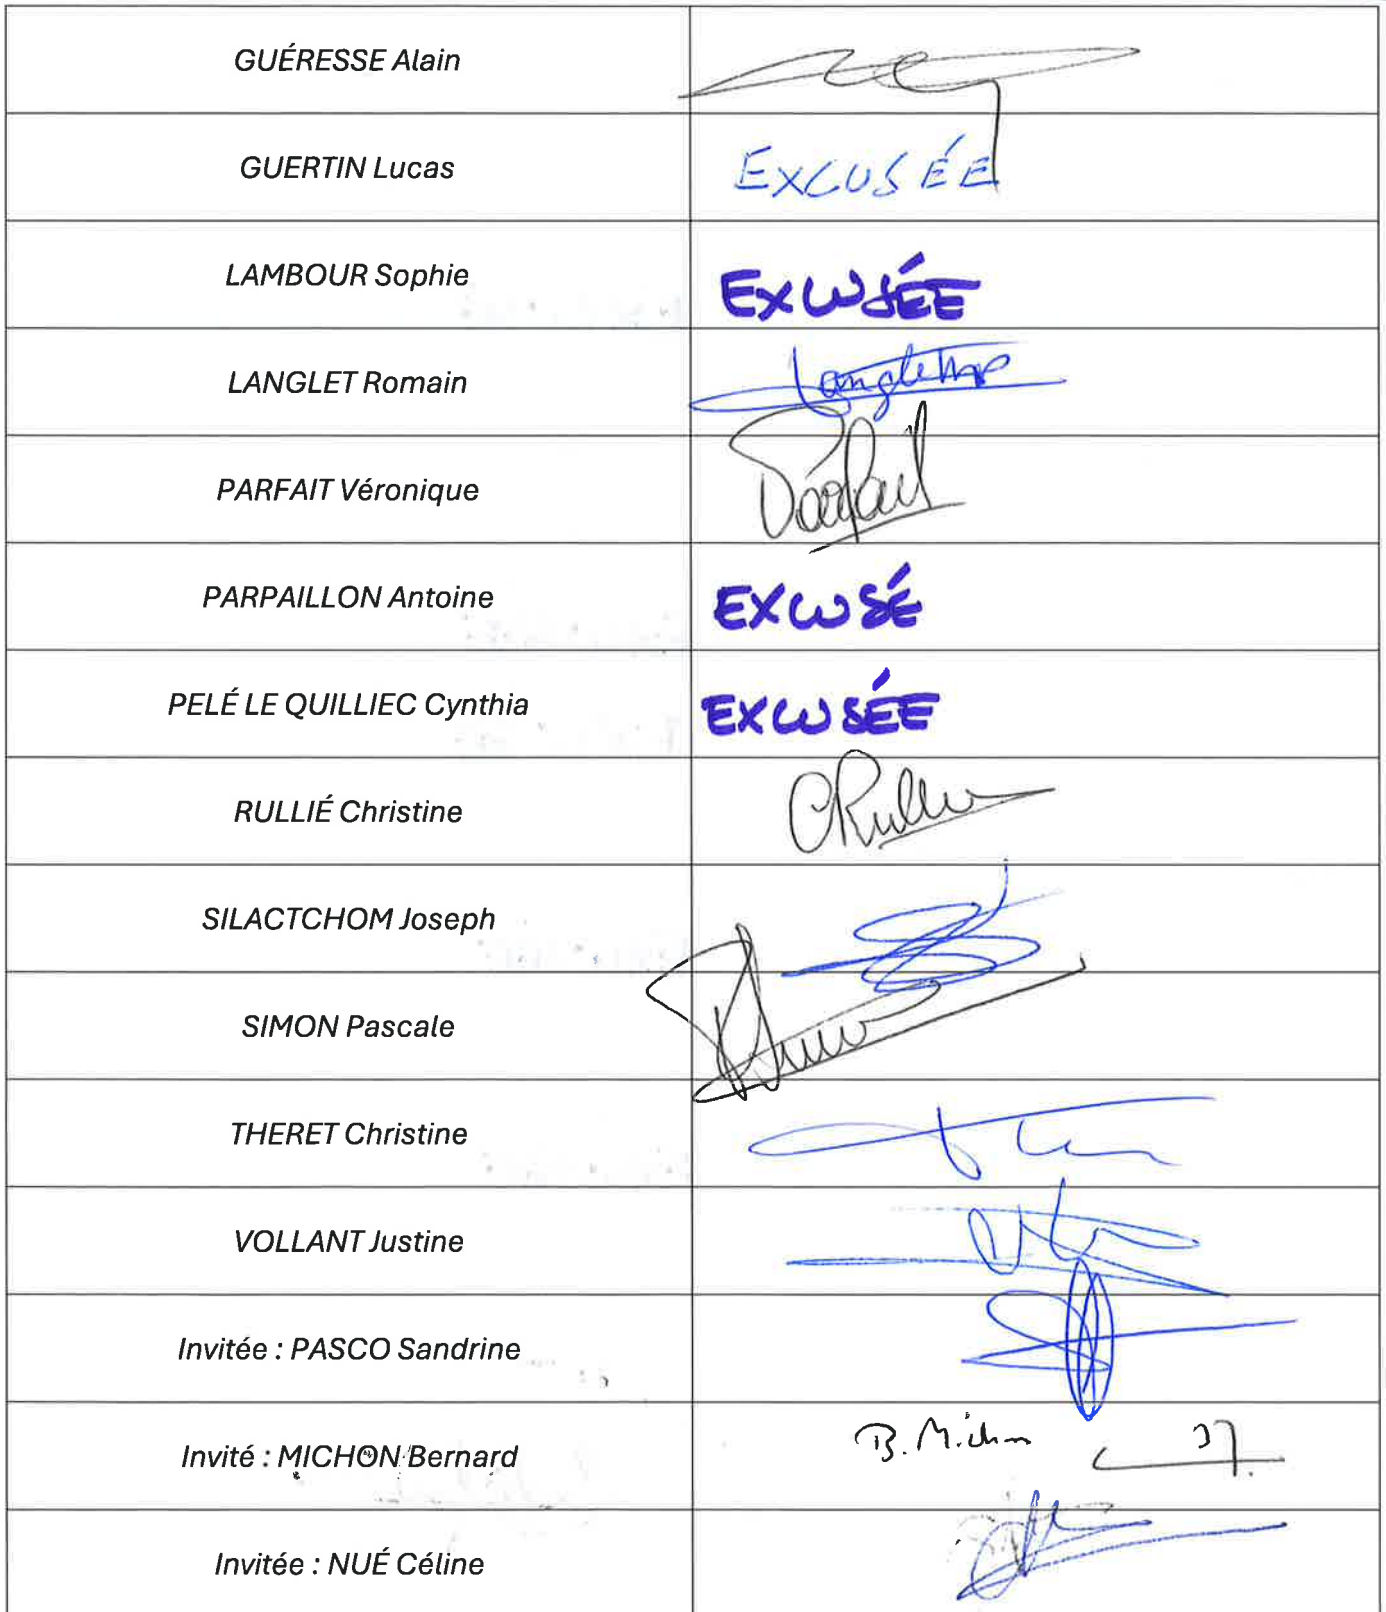 GUÉRESSE Alain
GUERTIN Lucas EXCUSÉE
LAMBOUR Sophie EXCUSÉE
LANGLET Romain
PARFAIT Véronique Parfait
PARPAILLON Antoine EXCUSÉ
PELÉ LE QUILLIEC Cynthia EXCUSÉE
RULLIÉ Christine CRullié
SILACTCHOM Joseph
SIMON Pascale
THERET Christine
VOLLANT Justine
Invitée : PASCO Sandrine
Invité : MICHON Bernard B. Michon
Invitée : NUÉ Céline